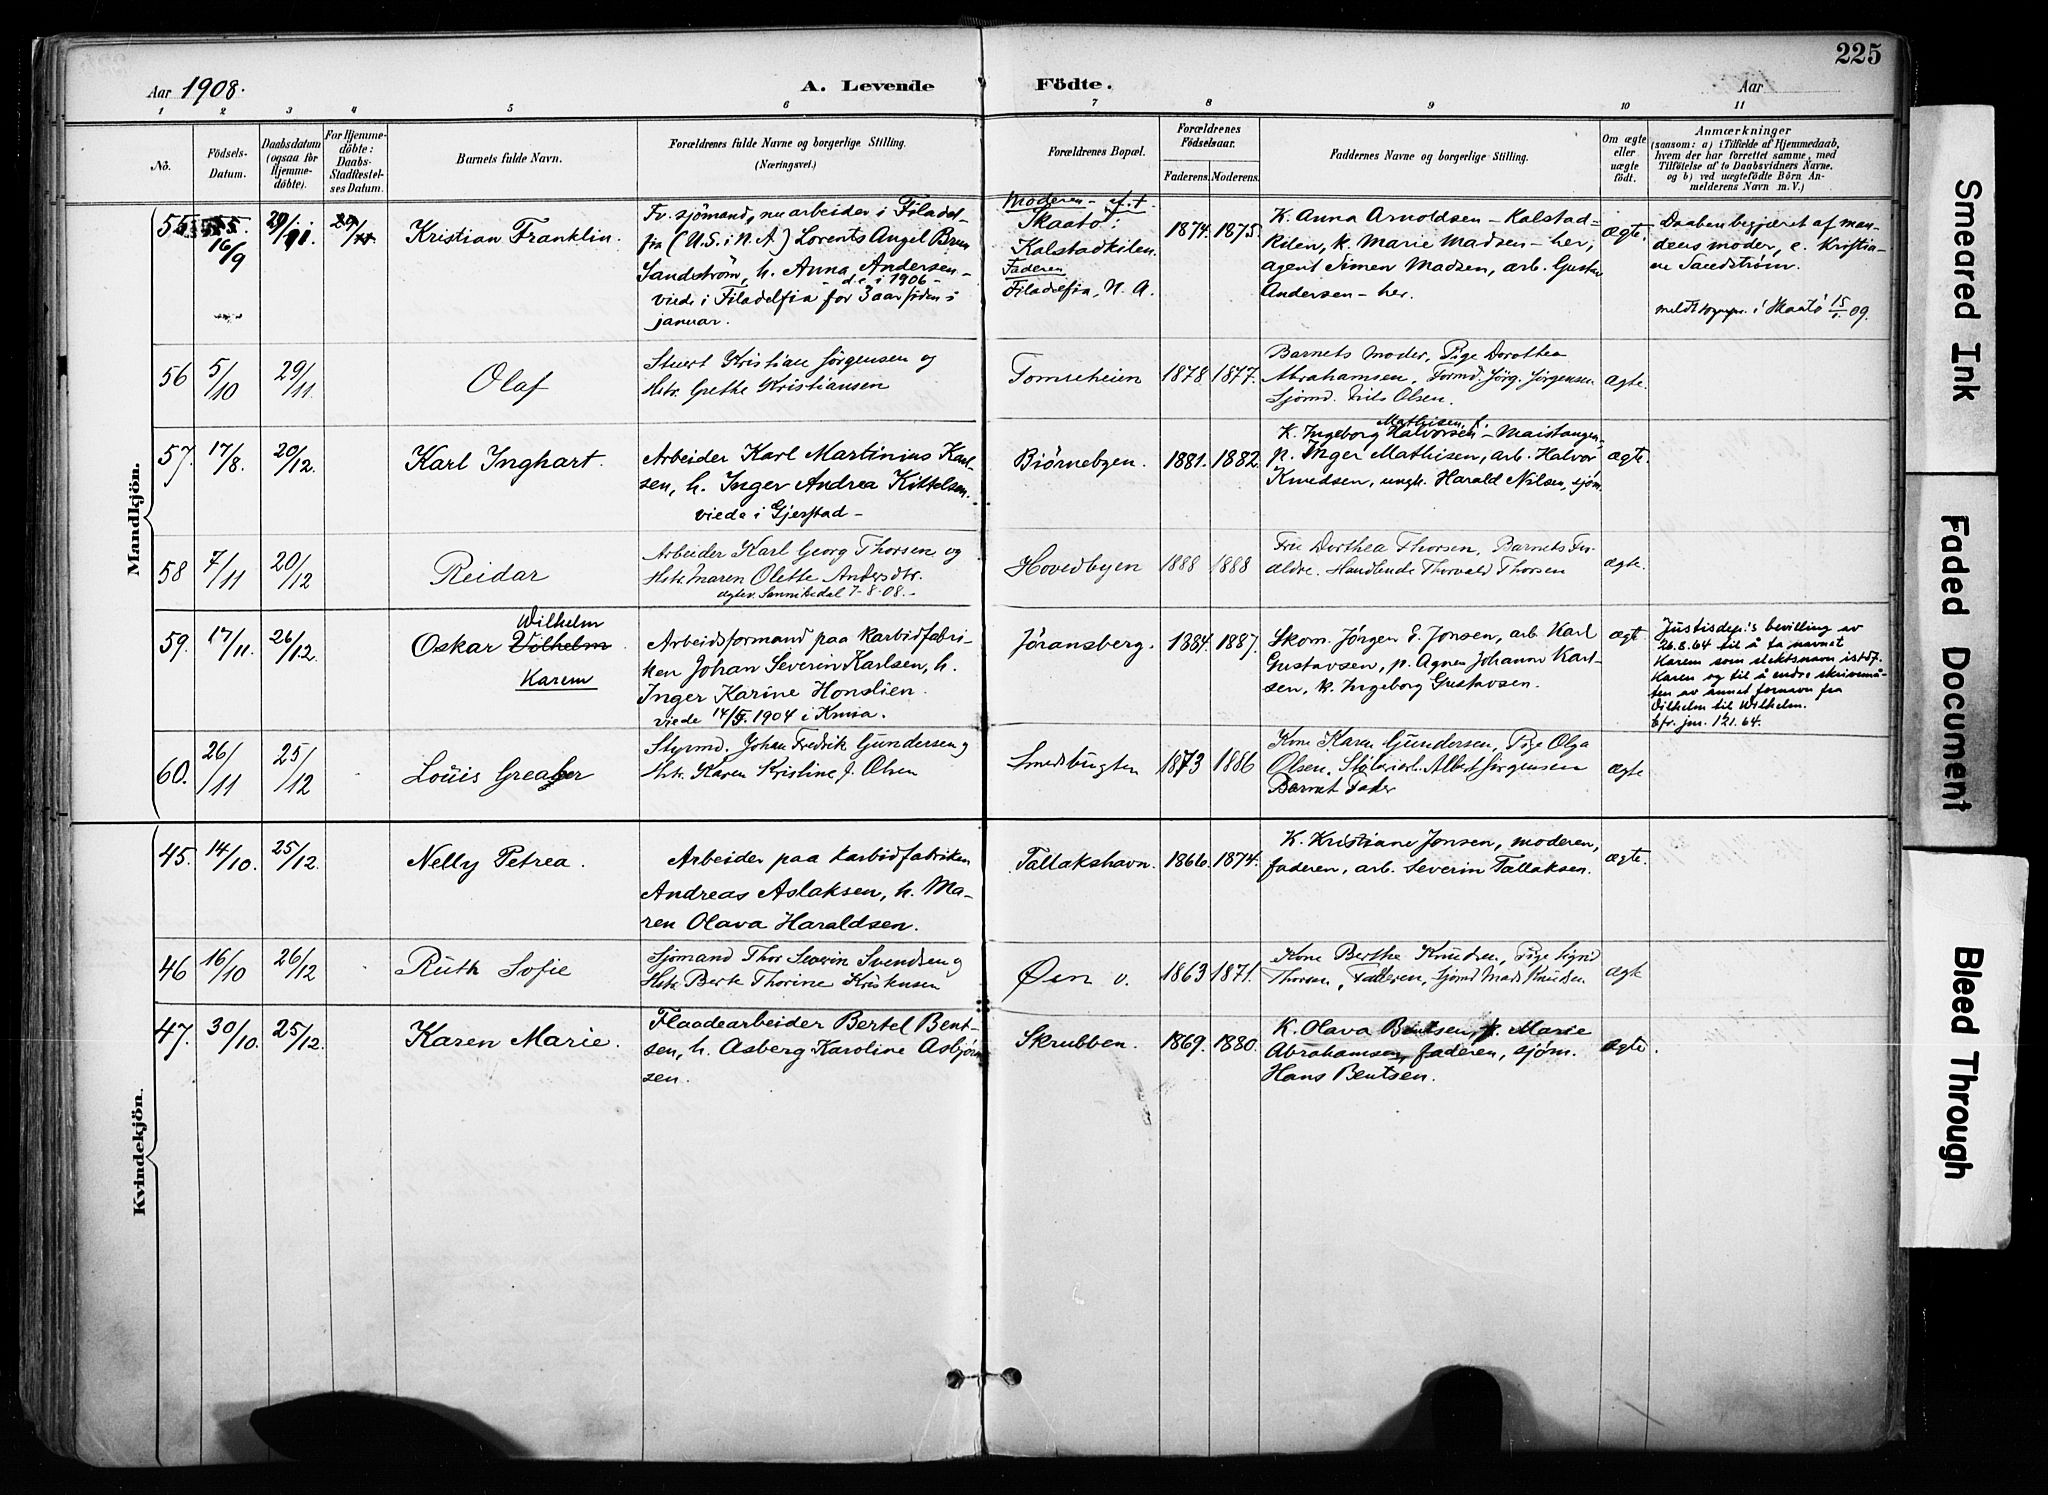 225
Aar 1908.
A. Levende Födte.
Aar
1 2 3 4 5 6 7 8 9 10 11
No.
Födsels-Datum.
Daabsdatum (ogsaa for Hjemmedöbte).
For Hjemmedöbte: Daabs-Stadfæstelses Datum.
Barnets fulde Navn.
Forældrenes fulde Navne og borgerlige Stilling. (Næringsvei.)
Forældrenes Bopæl.
Forældrenes Födselsaar.
Faderens. Moderens.
Faddernes Navne og borgerlige Stilling.
Om ægte eller uægte födt.
Anmærkninger
(saasom: a) i Tilfælde af Hjemmedaab,
hvem der har forrettet samme, med
Tilföielse af to Daabsvidners Navne.
og b) ved uægtefödte Börn An-
melderens Navn m. V.)
Mandkjön.
55
16/9
29/11
Kristian Franklin.
Fv. sjömand, nu arbeider i Filadel-
fia (U.S. i N.A) Lorents Angel Brun
Sandström, h. Anna Andersen -
- d. i 1906 -
viede i Filadelfia for 3 aar siden i
januar.
Moderen
Skaatö:
Kalstadkilen.
Faderen
Filadelfia, N. A.
1874. 1875.
K. Anna Arnoldsen - Kalstad-
kilen, k. Marie Madsen - her,
agent Simen Madsen, arb. Gustav
Andersen - her.
ægte.
Daaben begjæret af man-
dens moder, e. Kristia-
ne Sandström.
meldt sogepr. i Skaatö 15/1 09.
56 5/10 29/11
Olaf
Stuert Kristian Jörgensen og
Hstr. Grethe Kristiansen
Tomteheien
1878 1877.
Barnets Moder, Pige Dorothea
Abrahamsen, Formd. Jörg. Jörgensen
Sjömd. Nils Olsen.
ægte.
57. 17/8. 20/12.
Karl Inghart.
Arbeider Karl Martinius Karl-
sen, h. Inger Andrea Kittelsen.
viede i Gjerstad -
Biörnebyen.
1881. 1882.
Mathisen, f.
K. Ingeborg Halvorsen - Maistangen,
p. Inger Mathisen, arb. Halvor
Knudsen, ungk. Harald Nilsen, sjöm.
ægte.
58 7/11 20/12
Reidar
Arbeider Karl Georg Thorsen og
Hstr. Maren Olette Andersdtr.
ægtev. Sannikedal 7-8-08.-
Hovedbyen
1888 1888
Fru Dorthea Thorsen, Barnets For-
ældre. Handlende Thorvald Thorsen
ægte.
59. 17/11. 26/12.
Wilhelm
Oskar Vilhelm.
Karem
Arbeidsformand paa karbidfabri-
ken Johan Severin Karlsen, h.
Inger Karine Honslien.
viede 14/5. 1904 i Knisa.
Jöransberg.
1884. 1887.
Skom. Jörgen E. Jonsen, arb. Karl
Gustavsen, p. Agnes Johanne Karl-
sen, k. Ingeborg Gustavsen.
ægte
Justisdep.'s bevilling av
26.8.64 til å ta navnet
Karem som slektsnavn istdf.
Karen og til å endre skrivemå-
ten av annet fornavn fra
Vilhelm til Wilhelm.
Cfr. jnr. 121.64.
60. 26/11 25/12
Louis Greager
Styrmd. Johan Fredrik Gundersen og
Hstr. Karen Kristine J. Olsen
Smedsbugten
1873 1886
Kone Karen Gundersen, Pige Olga
Olsen. Albert Jörgensen
Barnets Fader
ægte
Kvindekjön.
45. 14/10. 25/12.
Nelly Petrea.
Arbeider paa karbidfabriken
Andreas Aslaksen, h. Ma-
ren Olava Haraldsen.
Tallakshavn.
1866. 1874.
K. Kristiane Jonsen, moderen,
faderen, arb. Severin Tallaksen.
ægte.
46 16/10 26/12
Ruth Sofie
Sjömand Thor Severin Svendsen og
Hstr. Berte Thorine Kristensen
Øen v.
1863 1871.
Kone Berthe Knudsen, Pige Sigrid
Thorsen, Faderen, Sjömd Mads Knudsen
ægte
47. 30/10. 25/12.
Karen Marie.
Flaadearbeider Bertel Bent-
sen, h. Asberg Karoline Asbjörn-
sen.
Skrubben.
1869. 1880.
K. Olava Bentsen, p. Marie
Abrahamsen, faderen, sjöm.
Hans Bentsen.
ægte.
Smeared Ink
Faded Document
Bleed Through